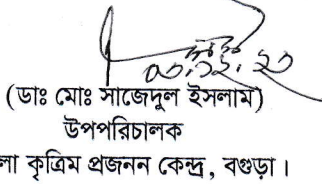 (ডাঃ মোঃ সাজেদুল ইসলাম)
উপপরিচালক
লা কৃত্রিম প্রজনন কেন্দ্র, বগুড়া।